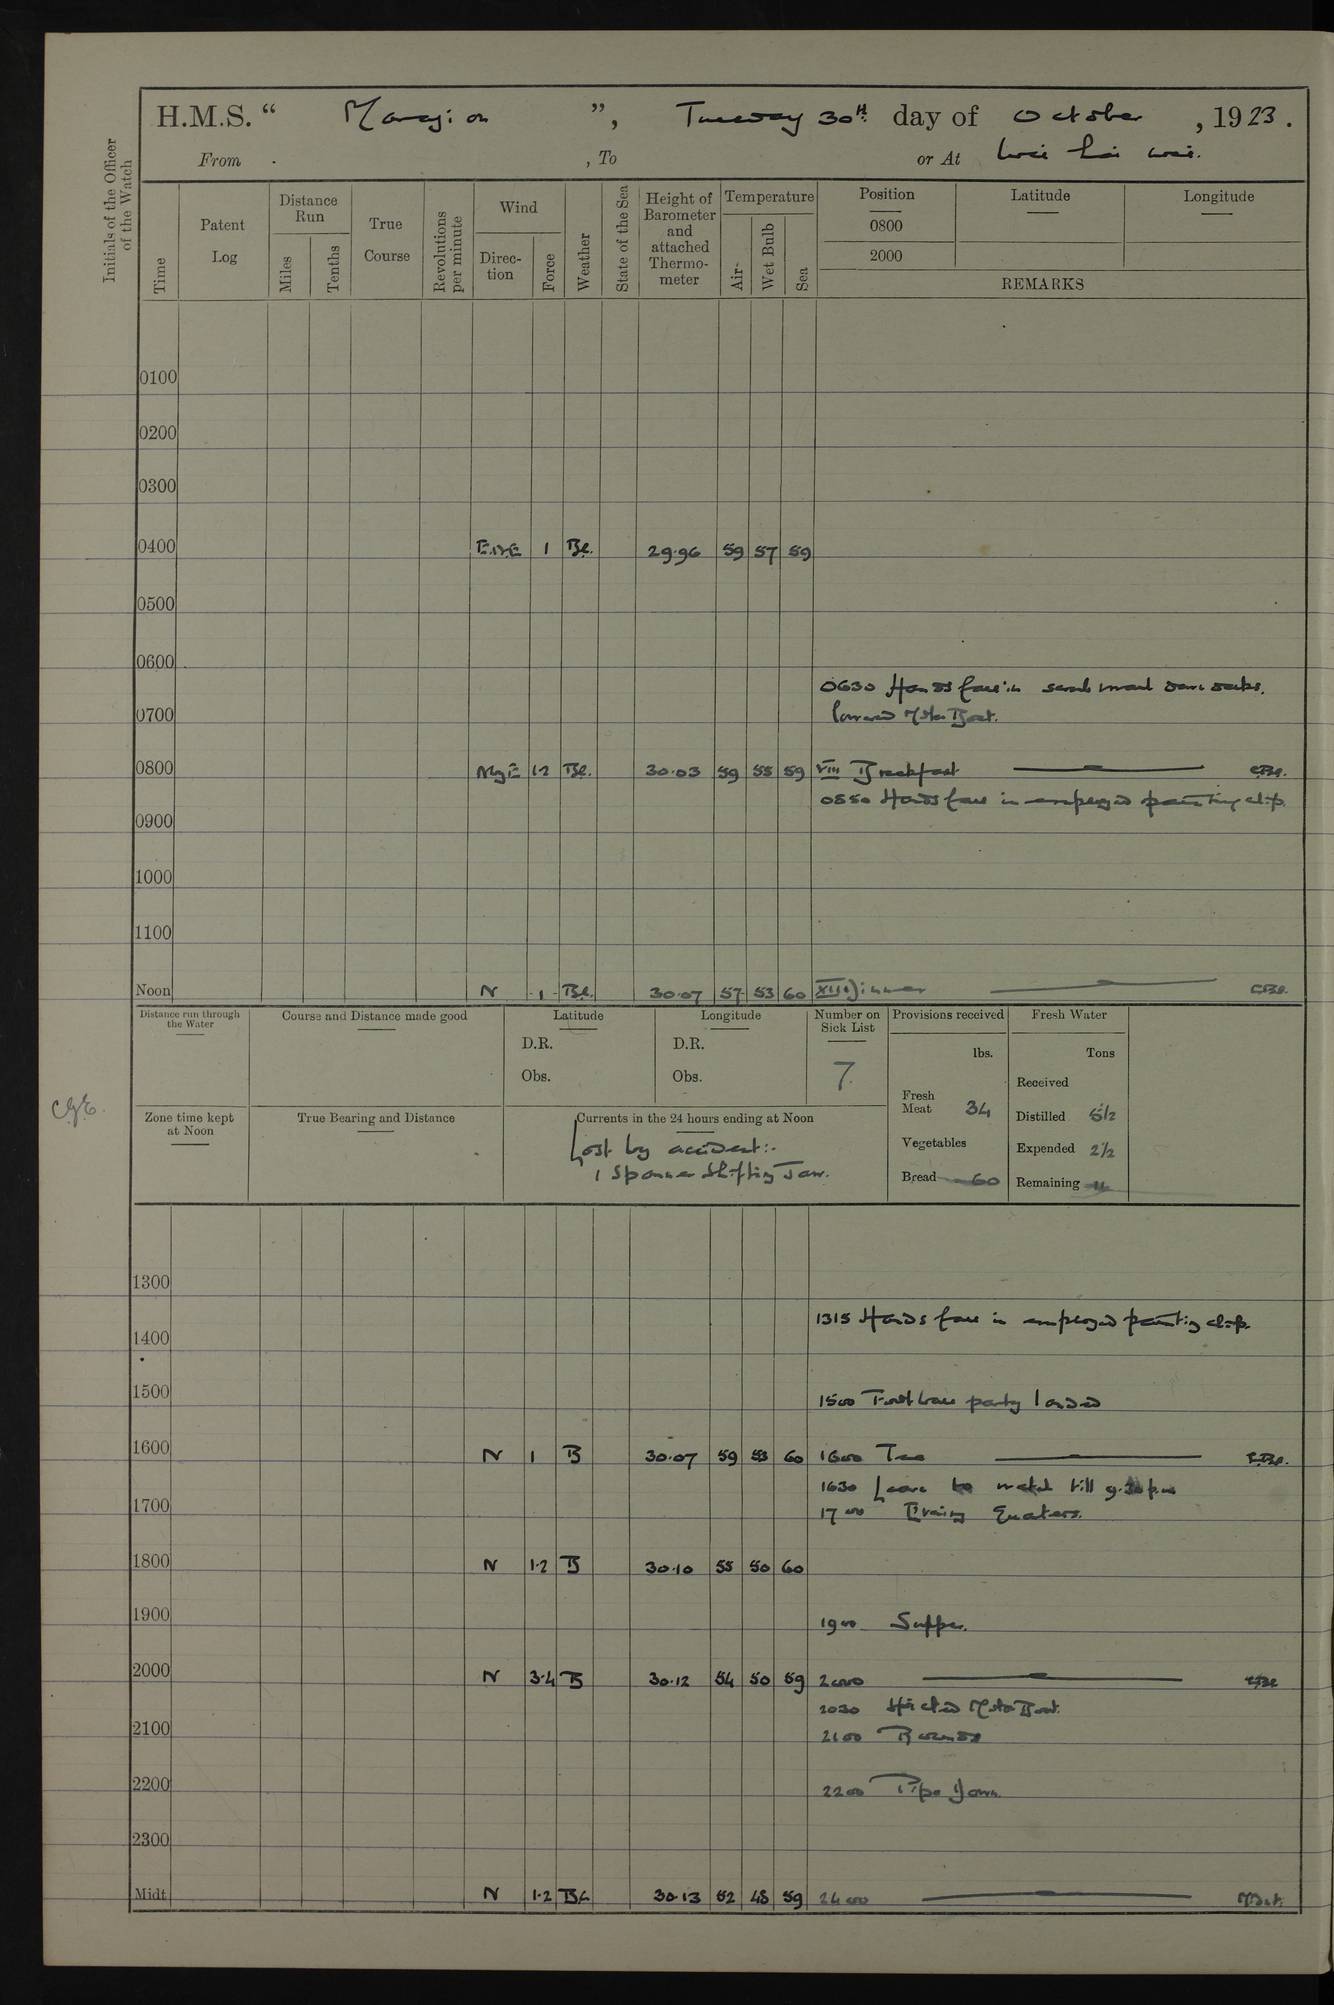 H.M.S. “ Marazion ”, Tuesday 30th day of October , 1923.
From , To or At Wei hai wei.
Initials of the Officer of the Watch
Time
Patent Log
Distance Run
Miles
Tenths
True Course
Revolutions per minute
Wind
Direction
Force
Weather
State of the Sea
Height of Barometer and attached Thermometer
Temperature
Air
Wet Bulb
Sea
Position Latitude Longitude
0800
2000
REMARKS
0100
0200
0300
0400 ENE 1 Bc. 29.96 59 57 59
0500
0600
0630 Hands fall in scrub
0700 lowered Motor Boat.
0800 1.2 Bc. 30.03 59 55 59 VIII Breakfast
0850 Hands fall in employed painting ship.
0900
1000
1100
Noon N 1 Bc. 30.07 57 53 60 XII Dinner
Distance run through the Water
Course and Distance made good
Latitude
D.R.
Obs.
Longitude
D.R.
Obs.
Number on Sick List
7.
Provisions received
lbs.
Fresh Meat 34
Vegetables
Bread 60
Fresh Water
Tons
Received
Distilled 5½
Expended 2½
Remaining 11
Zone time kept at Noon
True Bearing and Distance
Currents in the 24 hours ending at Noon
Lost by accident:-
1 Spanner Shifting Jaw.
1300
1315 Hands fall in employed painting ship.
1400
1500 1500 Football party landed
1600 N 1 B 30.07 59 53 60 1600 Tea
1630 Leave to watch till 9.30 p.m
1700 1700 Evening Quarters.
1800 N 1.2 B 30.10 55 50 60
1900 1900 Supper.
2000 N 3.4 B 30.12 54 50 59 2000
2030 Hoisted Motor Boat.
2100 2100 Rounds
2200 2200 Pipe Down
2300
Midt. N 1.2 Bc 30.13 52 48 59 2400